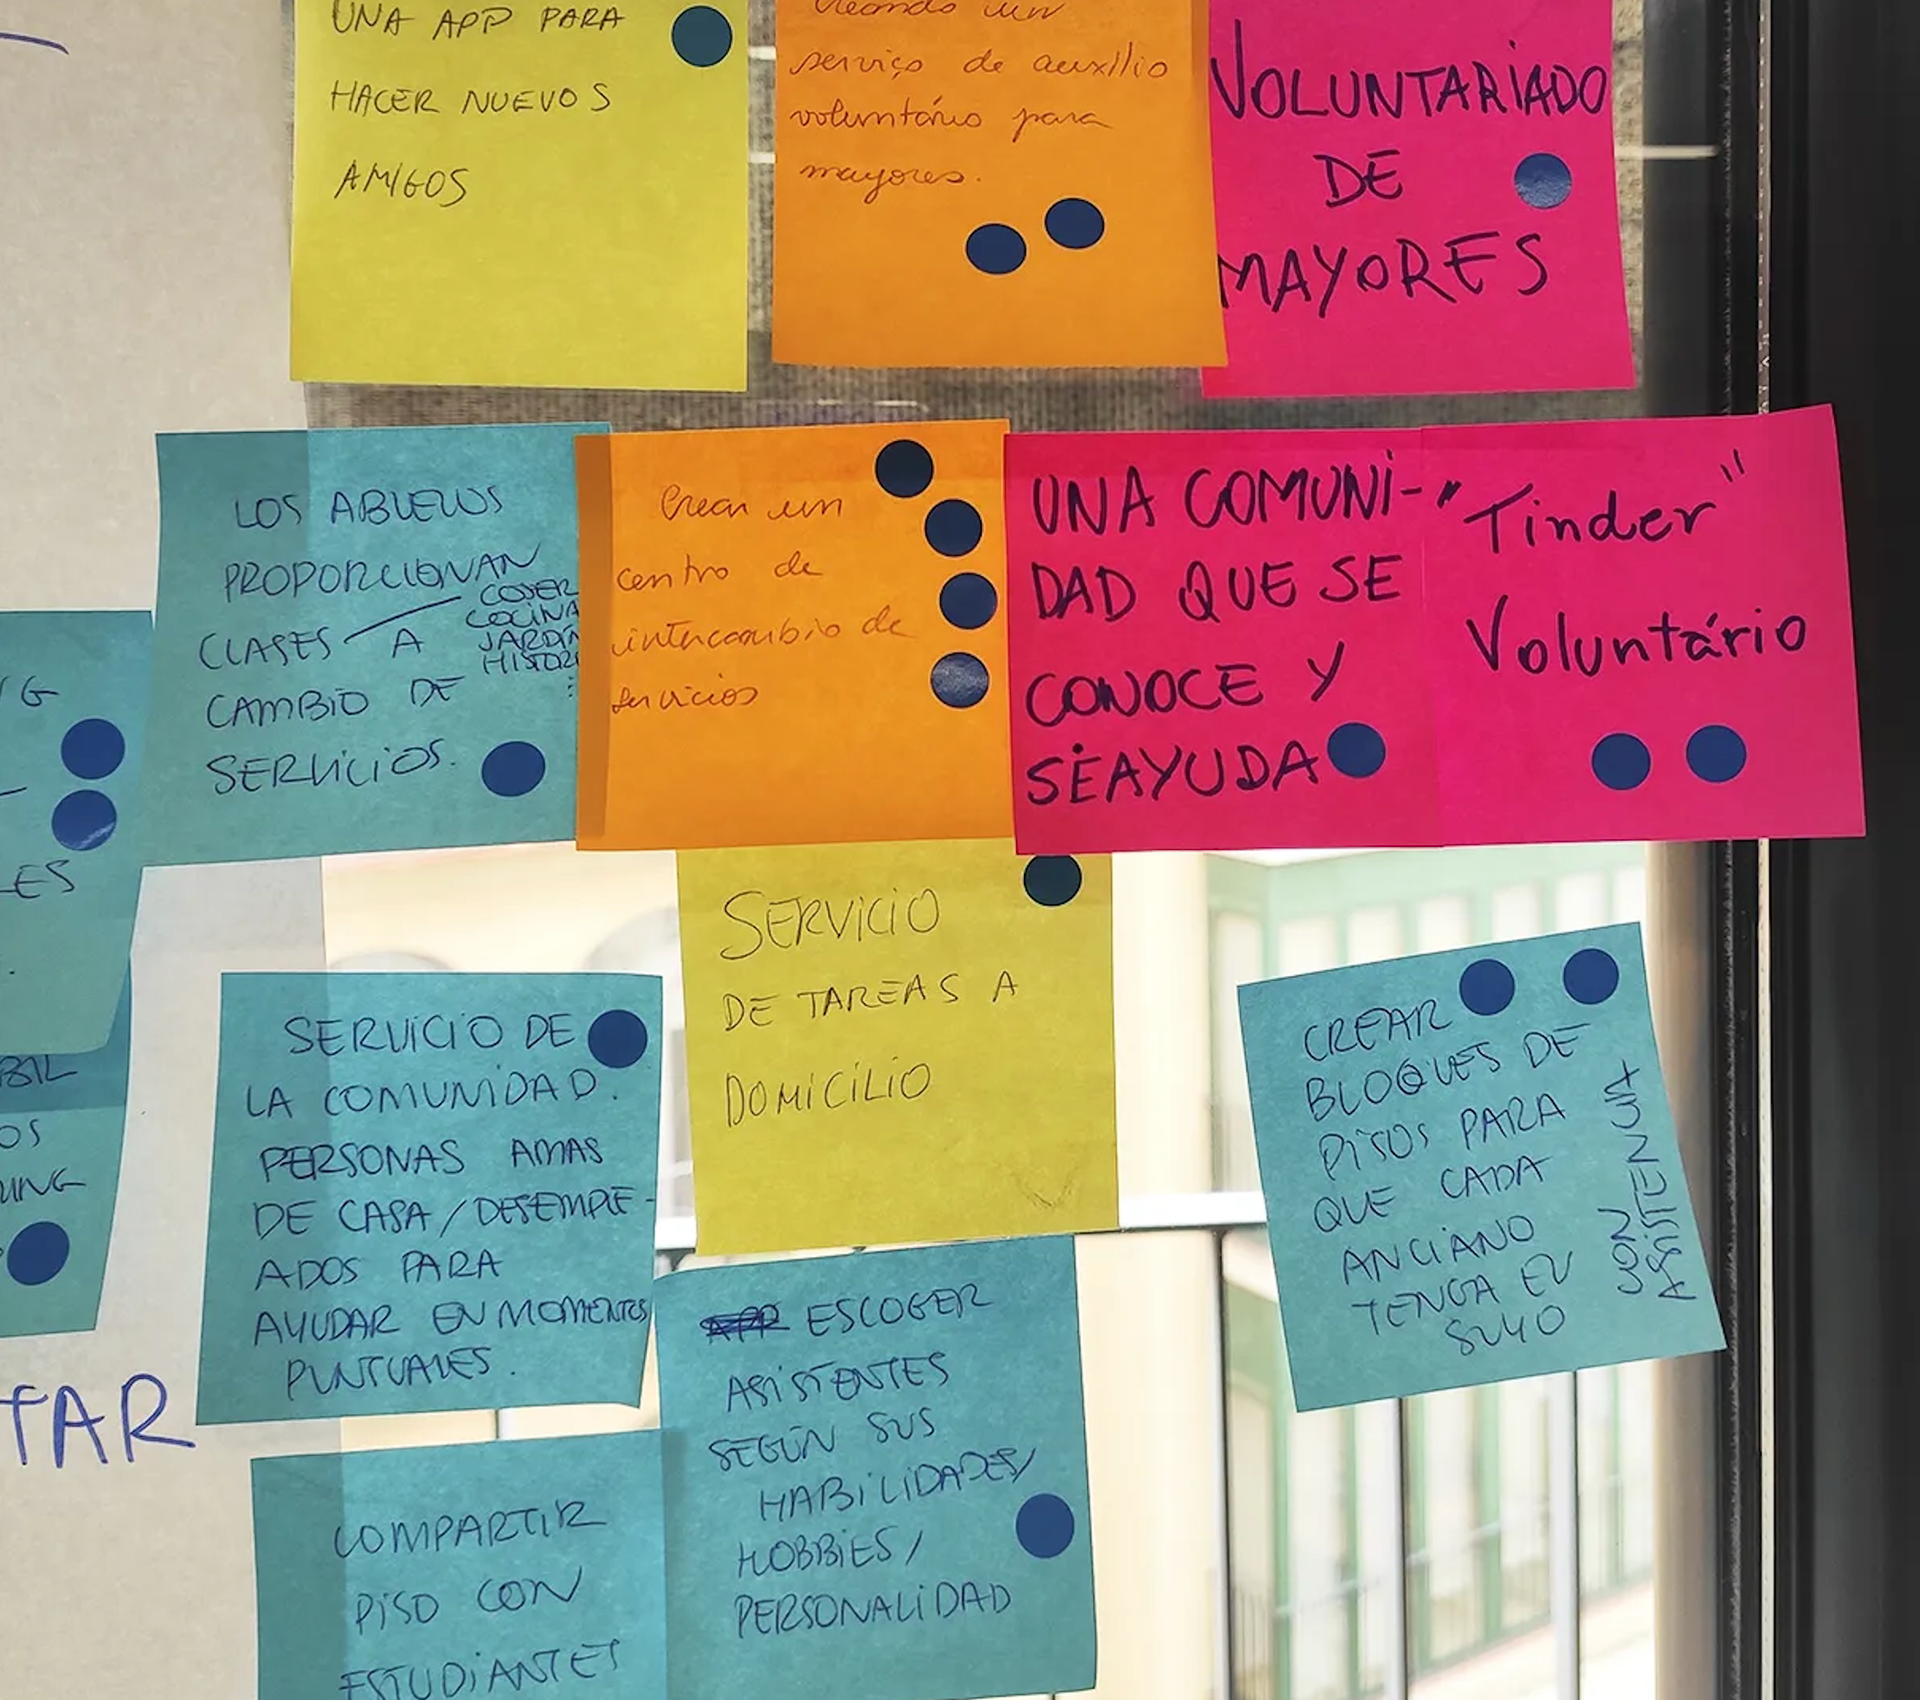 UNA APP PARA
HACER NUEVOS
AMIGOS
Creando un
serviço de auxílio
voluntário para
mayores.
VOLUNTARIADO
DE
MAYORES
LOS ABUELOS
PROPORCIONAN
CLASES A
COSER
COCINA
JARDÍN
HISTORI
...
CAMBIO DE
SERVICIOS.
Crear un
centro de
intercambio de
servicios
UNA COMUNI-
DAD QUE SE
CONOCE Y
SE AYUDA
"Tinder"
Voluntário
NG
LES
BIL
OS
UNG
SERVICIO
DE TAREAS A
DOMICILIO
SERVICIO DE
LA COMUNIDAD.
PERSONAS AMAS
DE CASA/DESEMPLE-
ADOS PARA
AYUDAR EN MOMENTOS
PUNTUALES.
CREAR
BLOQUES DE
PISOS PARA
QUE CADA
ANCIANO
TENGA EL
SUYO
CON
ASISTEN UA
TAR
ESCOGER
ASISTENTES
SEGÚN SUS
HABILIDADES/
HOBBIES/
PERSONALIDAD
COMPARTIR
PISO CON
ESTUDIANTES